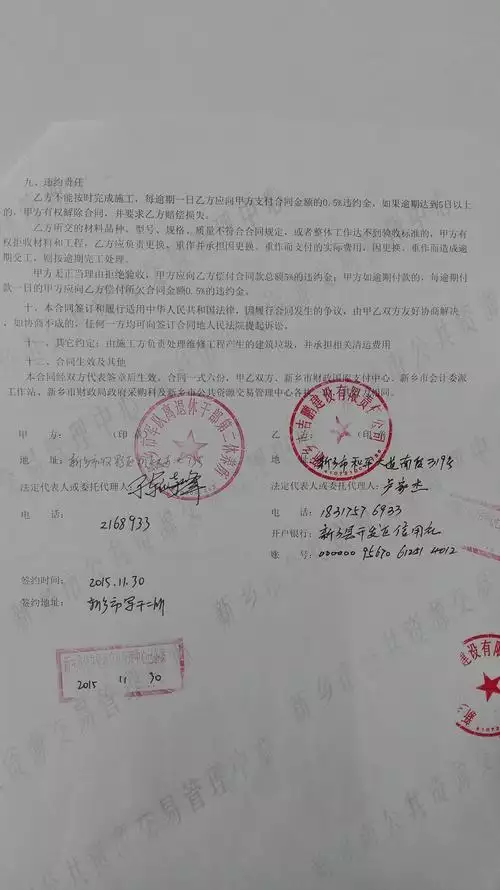 九、违约责任
乙方不能按时完成施工，每逾期一日乙方应向甲方支付合同金额的0.5%违约金，如果逾期达到5日以上
的，甲方有权解除合同，并要求乙方赔偿损失。
乙方所交的材料品种、型号、规格、质量不符合合同规定，或者整体工作达不到验收标准的，甲方有
权拒收材料和工程，乙方应负责更换、重作并承担因更换、重作而支付的实际费用，因更换、重作而造成逾
期交工，则按逾期完工处理。
甲方无正当理由拒绝验收，甲方应向乙方偿付合同款总额5%的违约金；甲方如逾期付款的，每逾期付
款一日的甲方应向乙方偿付所欠合同金额0.5%的违约金。
十、本合同签订和履行适用中华人民共和国法律，因履行合同发生的争议，由甲乙双方友好协商解决
，如协商不成的，任何一方均可向签订合同地人民法院提起诉讼。
十一、其它约定：由施工方负责处理维修工程产生的建筑垃圾，并承担相关清运费用
十二、合同生效及其他
本合同经双方代表签章后生效。合同一式六份，甲乙双方、新乡市财政国库支付中心、新乡市会计委派
工作站、新乡市财政局政府采购科及新乡市公共资源交易管理中心各
甲 方： （印
乙 （印
地 址：新乡市
地 新乡市和平大道南段319号
法定代表人或委托代理人：
法定代表人或委托代理人：卢家杰
电 话：
2168933
电 话：18317576933
开户银行：新乡县开发区信用社
账 号：000000 95670 61251 4012
签约时间： 2015.11.30
签约地址： 新乡市军干二所
2015 11 30
吉鹏建设有限责任公司
军队离退休干部第二休养所
建设有限